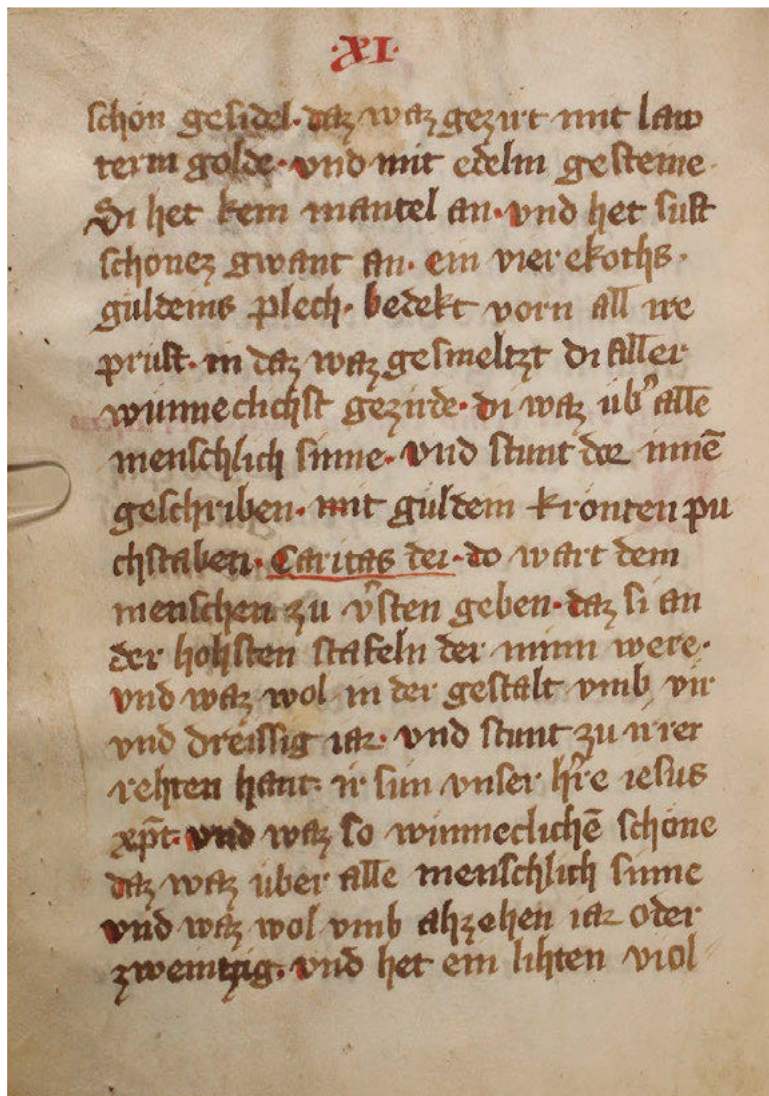 ·XI·
schon gesidel· daz waz gezirt mit law
term golde· vnd mit edelm gesteine·
Di het kein mantel an· vnd het sust
schonez gwant an· ein vierekoths·
guldeins plech· bedekt vorn all ire
prust· in daz waz gesmeltzt di aller
wunneclichst gezirde· di waz ub᾽ alle
menschlich sinne· vnd stunt dor innē
geschriben· mit guldein kronten pu
chstaben· Caritas dei·do wart dem
menschen zu v᾽sten geben· daz si an
der hohsten stafeln der minn were·
vnd waz wol in der gestalt vmb vir
vnd dreissig iar· vnd stunt zu irrer
rehten hant· ir sun vnser h᾽re iesus
xp̄t· vnd waz so winneclichē schone
daz waz über alle menschlich sinne
vnd waz wol vmb ahzehen iar oder
zweintzig· vnd het ein lihten viol